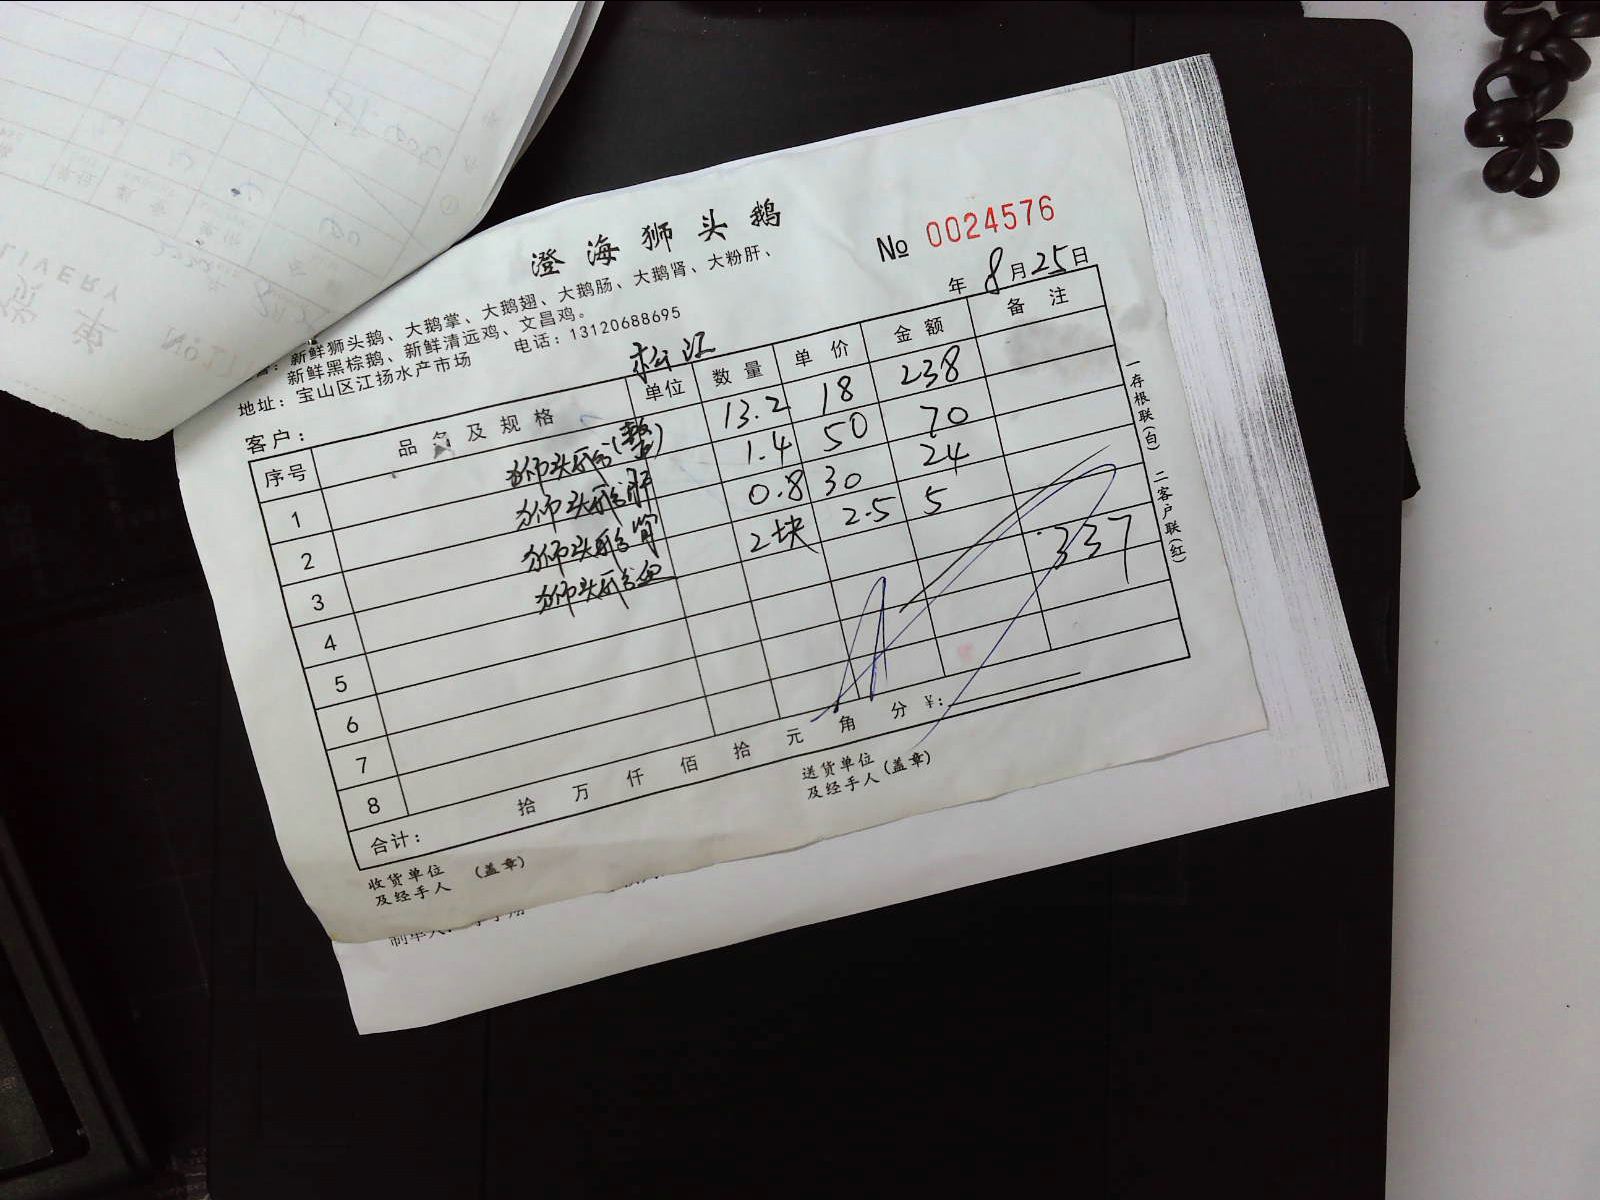 澄海狮头鹅
№ 0024576
新鲜狮头鹅、大鹅掌、大鹅翅、大鹅肠、大鹅肾、大粉肝、
新鲜黑棕鹅、新鲜清远鸡、文昌鸡。
地址：宝山区江扬水产市场 电话：13120688695
年 8月25日
客户： 松江
序号 品名及规格 单位 数量 单价 金额 备注
1 狮头鹅(整) 13.2 18 238
2 狮头鹅肝 1.4 50 70
3 狮头鹅肾 0.8 30 24
4 狮头鹅血 2块 2.5 5
5
337
6
7
8
合计： 拾 万 仟 佰 拾 元 角 分 ¥:
收货单位
及经手人 (盖章)
送货单位
及经手人 (盖章)
一存根联(白) 二客户联(红)